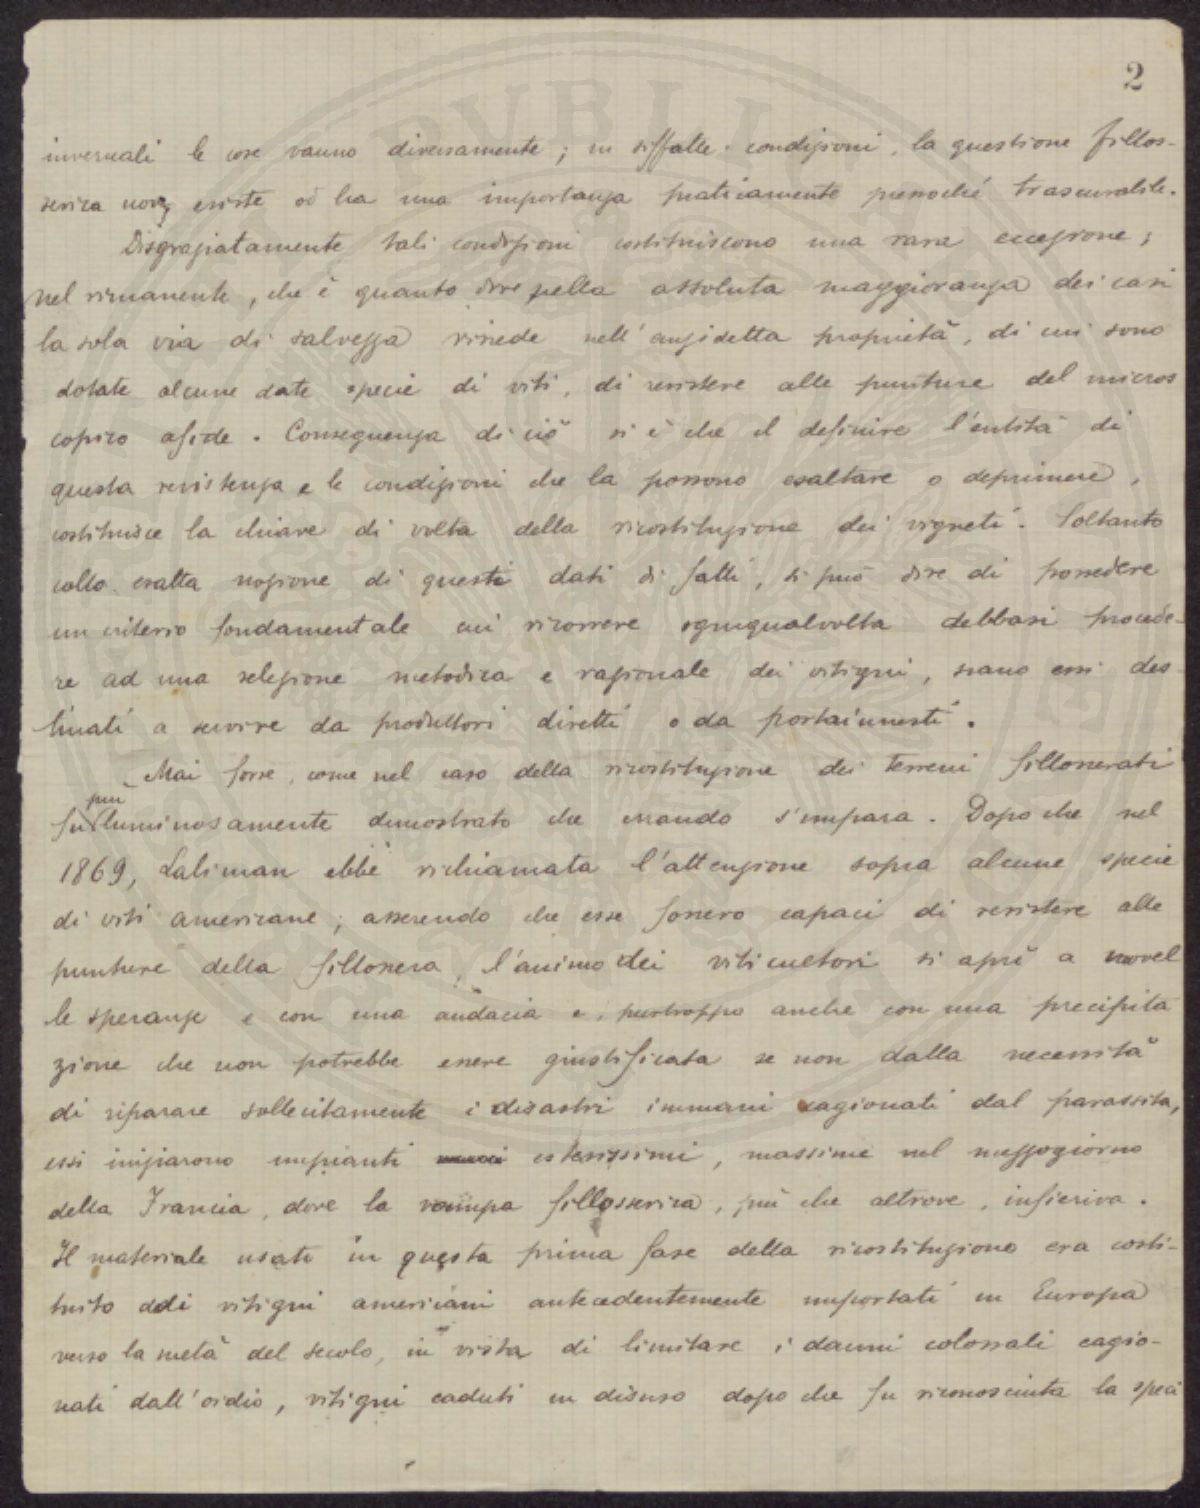 2
invernali le cose vanno diversamente; in siffatte condizioni, la questione fillos-
serica non esiste od ha una importanza praticamente pressoché trascurabile.
Disgraziatamente tali condizioni costituiscono una rara eccezione;
nel rimanente, che è quanto dire nella assoluta maggioranza dei casi
la sola via di salvezza risiede nell'anzidetta proprietà, di cui sono
dotate alcune date specie di viti, di resistere alle punture del micros
copico afide. Conseguenza di ciò si è che il definire l'entità di
questa resistenza e le condizioni che la possono esaltare o deprimere,
costituisce la chiave di volta della ricostituzione dei vigneti. Soltanto
colla esatta nozione di questi dati di fatti, si può dire di possedere
un criterio fondamentale cui ricorrere ogniqualvolta debbasi procede-
re ad una selezione metodica e razionale dei vitigni, siano essi des
tinati a servire da produttori diretti o da portainnesti.
Mai forse, come nel caso della ricostituzione dei terreni fillosserati
fu più luminosamente dimostrato che errando s'impara. Dopo che nel
1869, Laliman ebbe richiamata l'attenzione sopra alcune specie
di viti americane, asserendo che esse fossero capaci di resistere alle
punture della fillossera, l'animo dei viticultori si aprì a novel
le speranze e con una audacia e, purtroppo anche con una precipita
zione che non potrebbe essere giustificata se non dalla necessità
di riparare sollecitamente i disastri immani cagionati dal parassita,
essi iniziarono impianti estesissimi, massime nel mezzogiorno
della Francia, dove la vampa fillosserica, più che altrove, infieriva.
Il materiale usato in questa prima fase della ricostituzione era costi-
tuito di vitigni americani antecedentemente importati in Europa
verso la metà del secolo, in vista di limitare i danni colossali cagio-
nati dall'oidio, vitigni caduti in disuso dopo che fu riconosciuta la speci